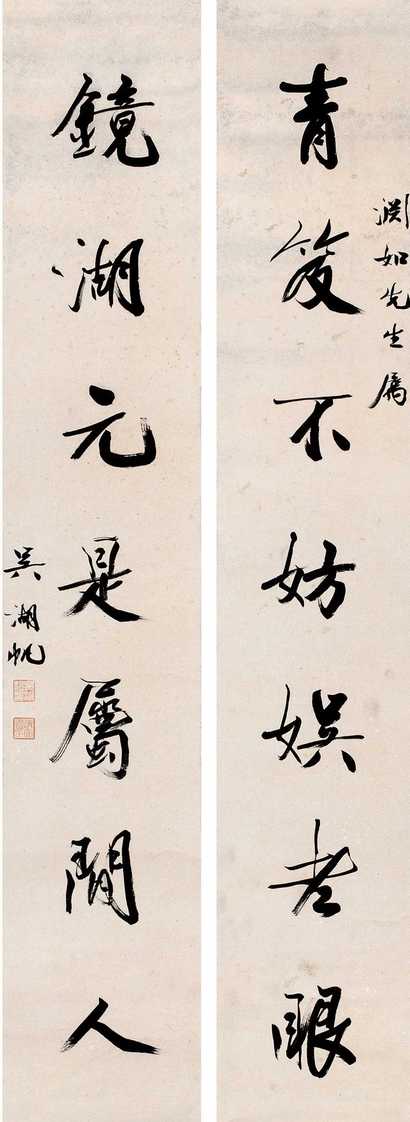 青笈不妨娛老眼
淵如先生屬
鏡湖元是屬閒人
吳湖帆